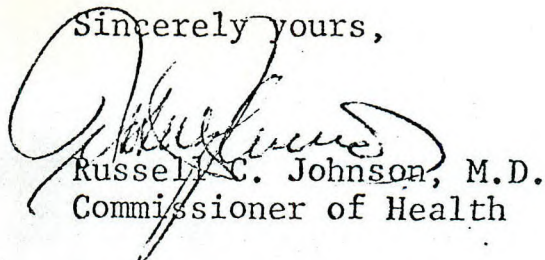 Sincerely yours,
Russell C. Johnson, M.D.
Commissioner of Health